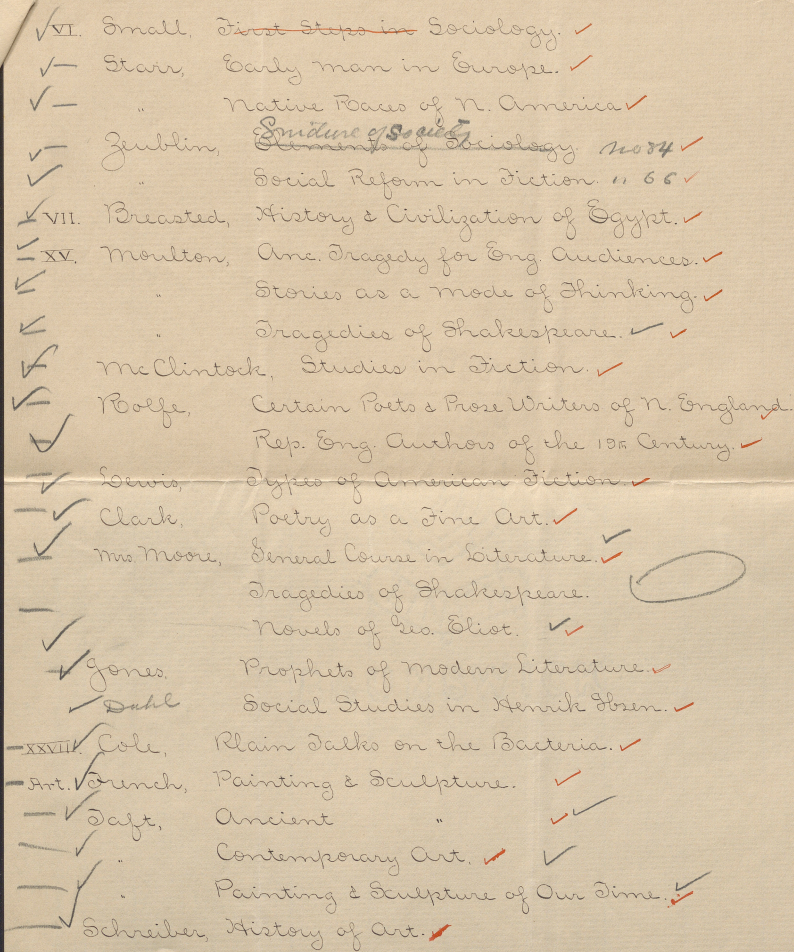 VI. Small, First Steps in Sociology.
Starr, Early Man in Europe.
" Native Races of N. America
Structure of Society
Zeublin, Elements of Sociology. No 84
" Social Reform in Fiction. " 66
VII. Breasted, History & Civilization of Egypt.
XV. Moulton, Anc. Tragedy for Eng. Audiences.
" Stories as a Mode of Thinking.
" Tragedies of Shakespeare.
McClintock, Studies in Fiction.
Rolfe, Certain Poets & Prose Writers of N. England.
Rep. Eng. Authors of the 19th Century.
Lewis, Types of American Fiction.
Clark, Poetry as a Fine Art.
Mrs. Moore, General Course in Literature.
Tragedies of Shakespeare.
Novels of Geo. Eliot.
Jones, Prophets of Modern Literature.
Dahl Social Studies in Henrik Ibsen.
XXVII. Cole, Plain Talks on the Bacteria.
Art. French, Painting & Sculpture.
Taft, Ancient "
" Contemporary Art.
" Painting & Sculpture of Our Time.
Schreiber, History of Art.